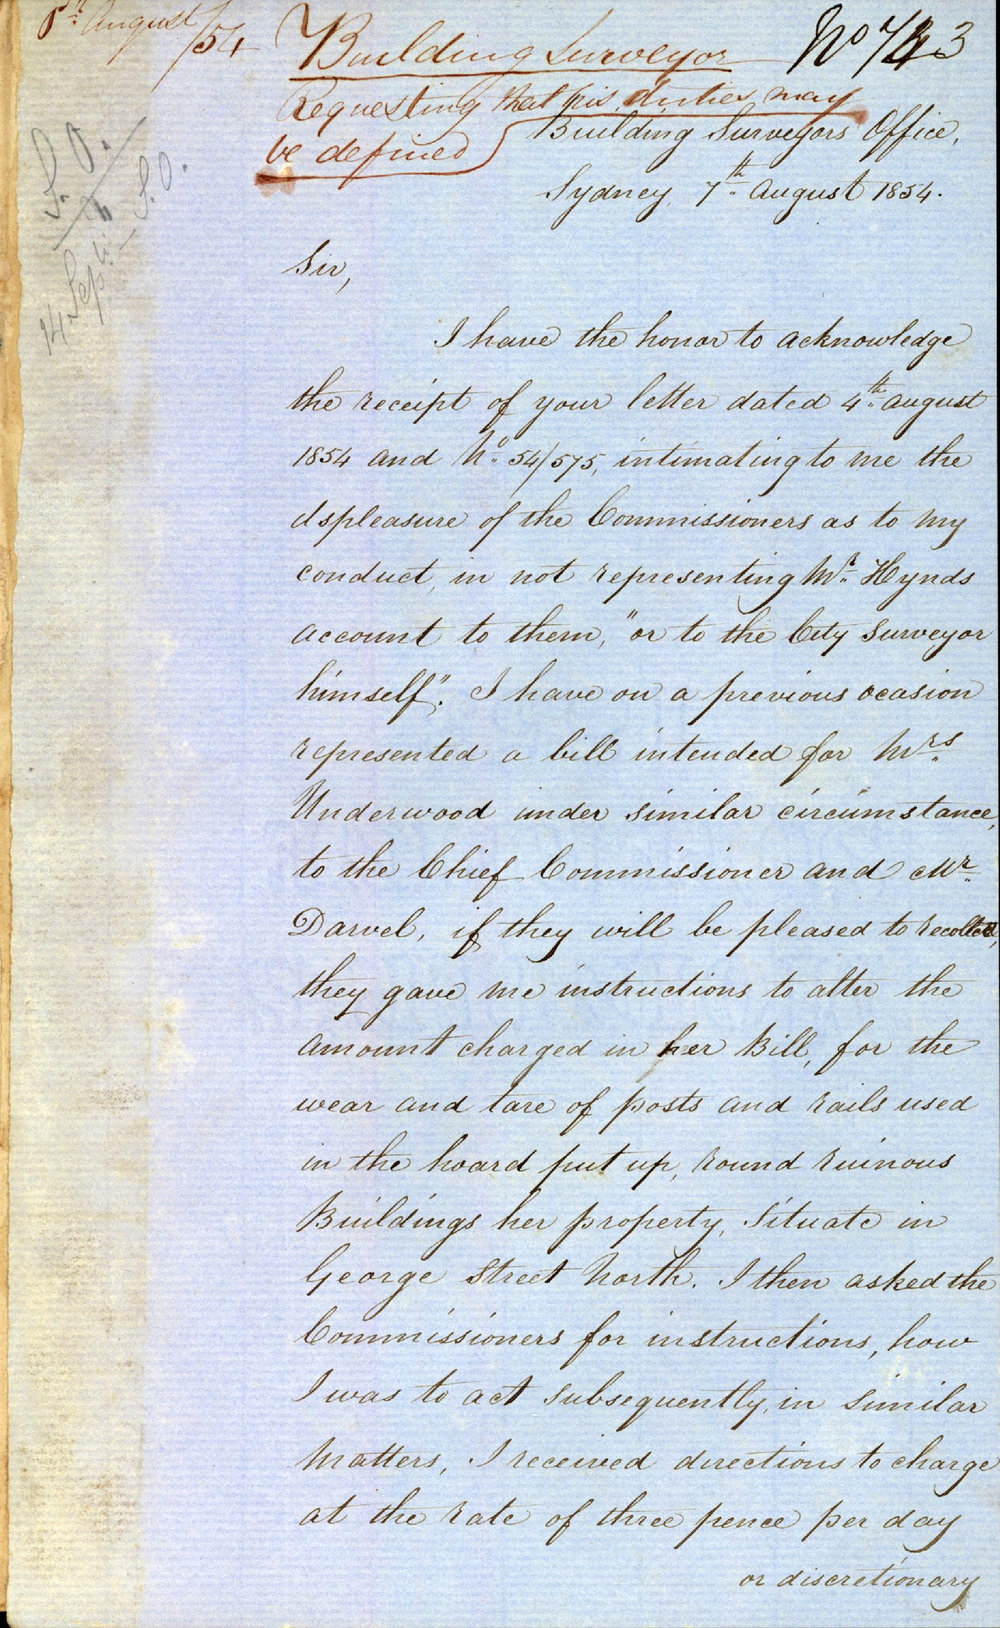 8th August
/54
Building Surveyor
No 743
Requesting that his duties may
be defined
Building Surveyors Office,
Sydney, 7th August 1854.
S. O.
S. O.
14 Sep
Sir,
I have the honor to acknowledge
the receipt of your letter dated 4th August
1854 and No 54/575, intimating to me the
dspleasure of the Commissioners as to my
conduct, in not representing Mr Hynds
account to them, "or to the City Surveyor
himself". I have on a previous ocasion
represented a bill intended for Mrs
Underwood under similar circumstance,
to the Chief Commissioner and Mr
Darvel, if they will be pleased to recollect,
they gave me instructions to alter the
amount charged in her Bill, for the
wear and tare of posts and rails used
in the hoard put up, round ruinous
Buildings her property, situate in
George Street North. I then asked the
Commissioners for instructions, how
I was to act subsequently, in similar
matters, I received directions to charge
at the rate of three pence per day
or discretionary